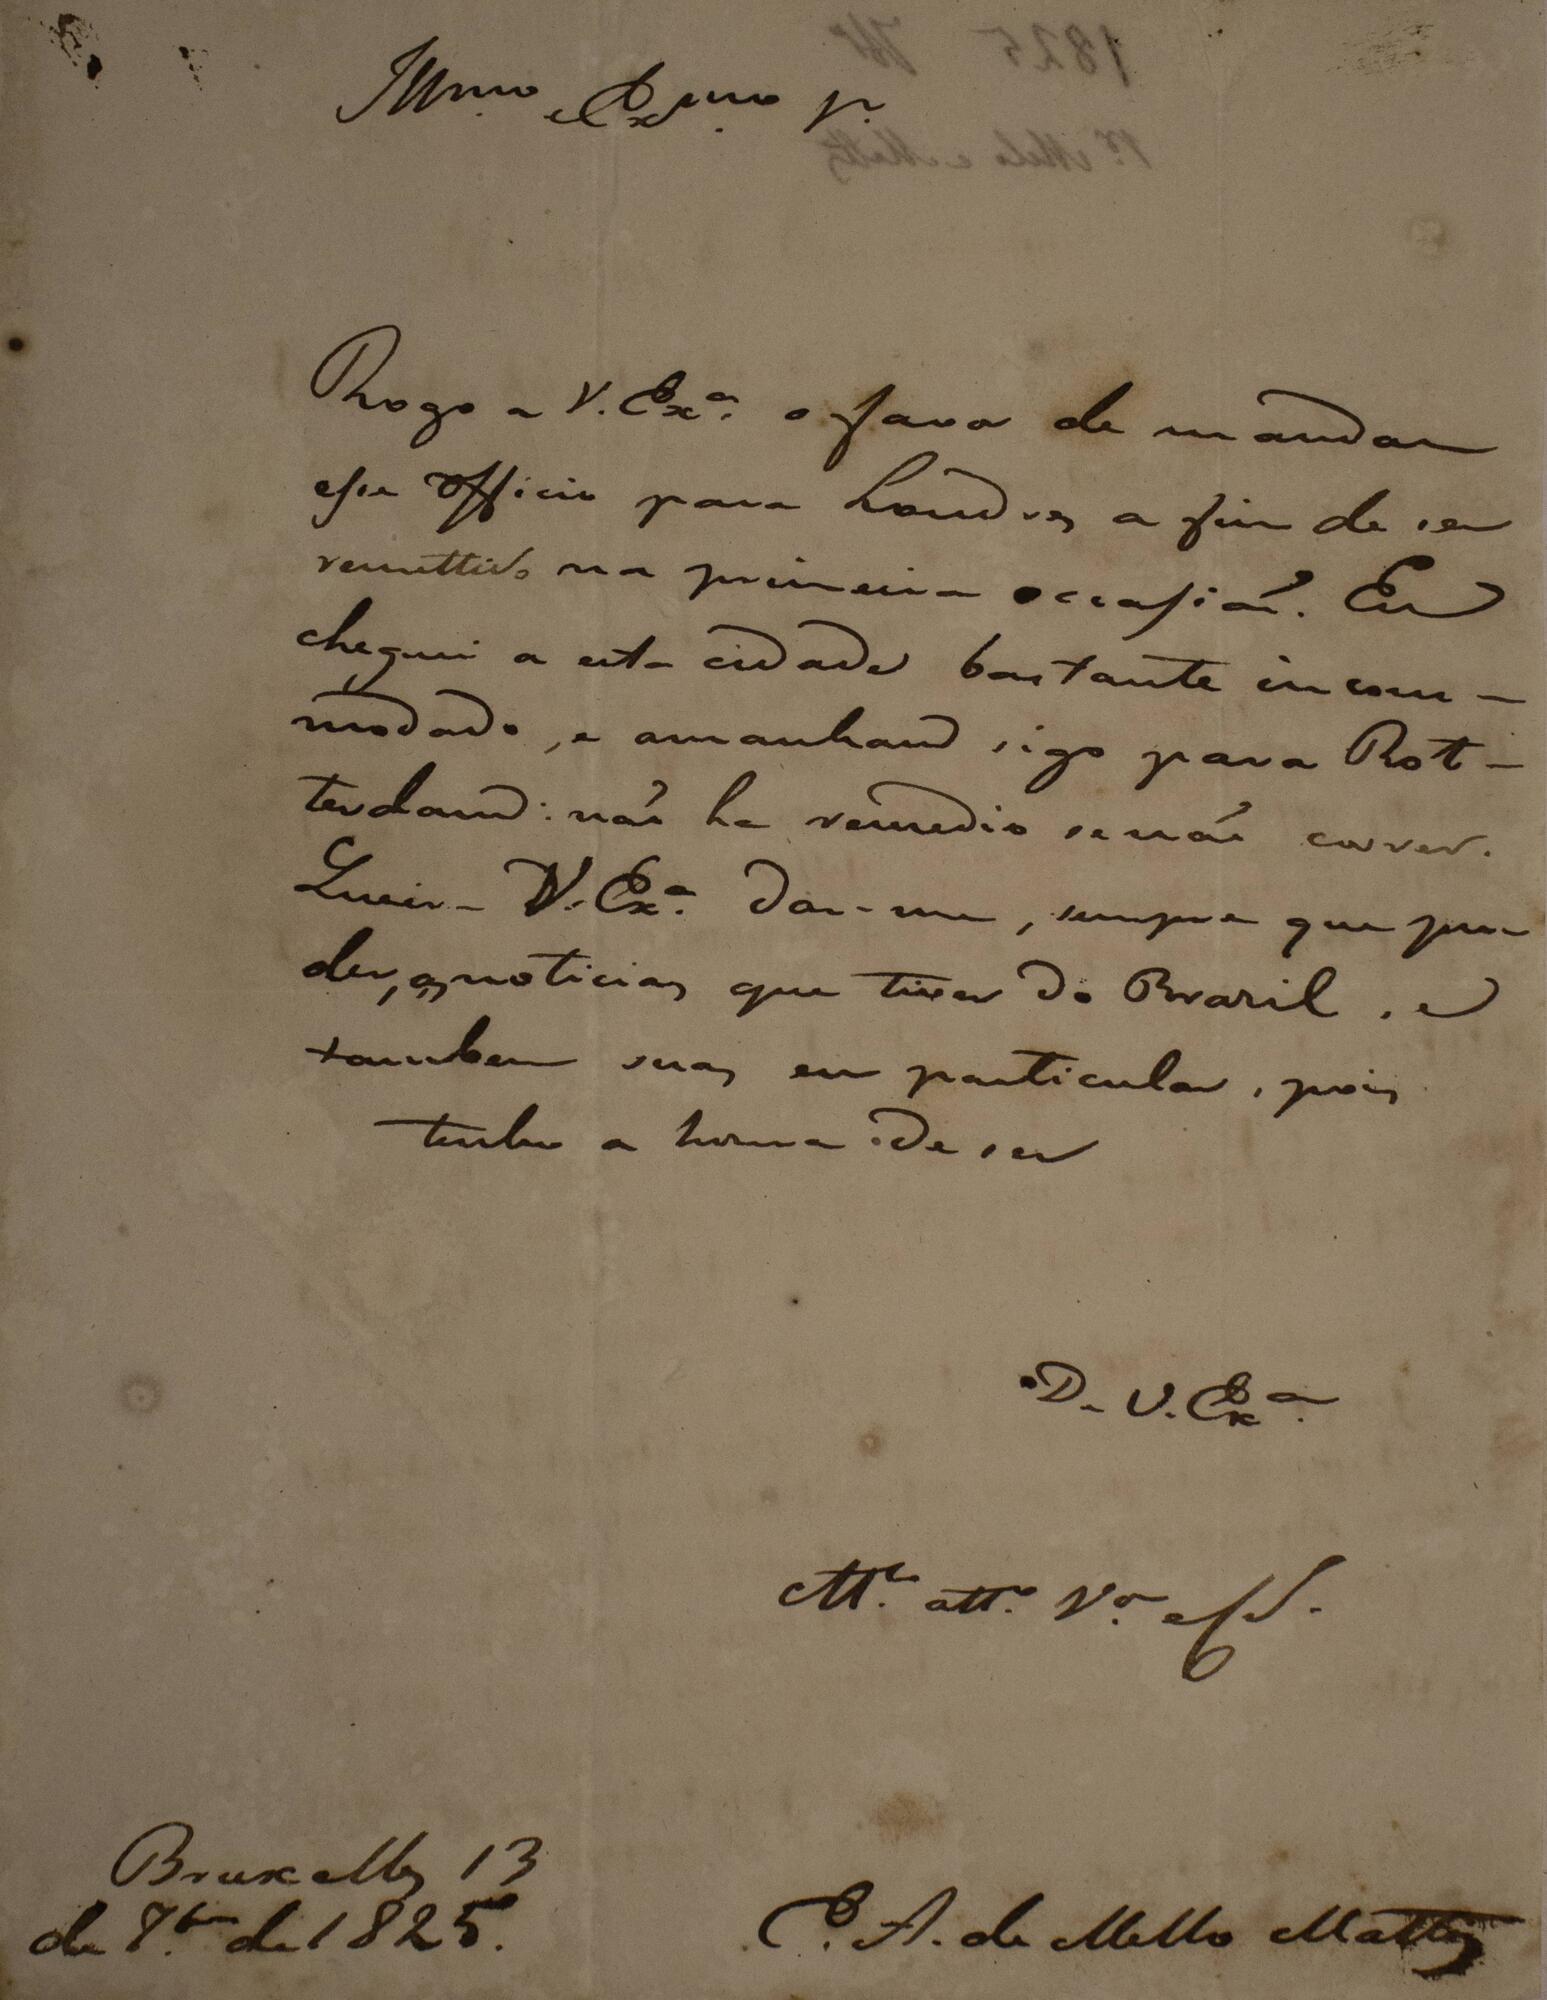 Illmo. e Exmo. Sr.
Rogo a V. Exa. o favor de mandar
esse officio para Londres a fim de ser
remettido na primeira occasiaõ. Eu
cheguei a esta cidade bastante incom-
modado, e amanhaã sigo para Rot-
terdam: naõ ha remedio senaõ correr.
Queira V. Exa. dar-me, sempre que pu-
der, as noticias que tiver do Brazil, e
tambem suas em particular, pois
tenho a honra de ser
De V. Exa.
Mto. atto. Vor. e
Bruxellas 13
de 7bro. de 1825.
E. A. de Mello Mattos